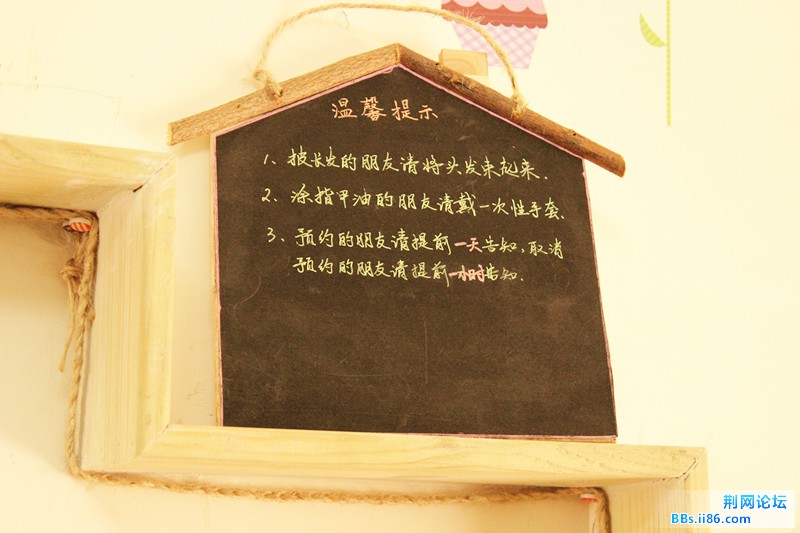 温馨提示
1、披长发的朋友请将头发束起来.
2、涂指甲油的朋友请戴一次性手套.
3、预约的朋友请提前一天告知,取消
预约的朋友请提前一小时告知.
荆网论坛
BBs.ii86.com